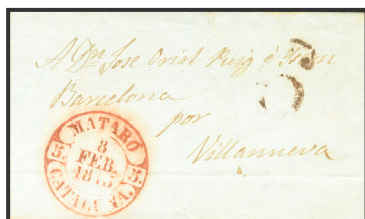 A Dn Jose Oriol Puig é
Barcelona
por
Villanueva
MATARÓ
8
FEB.
CATALUÑA
5 5